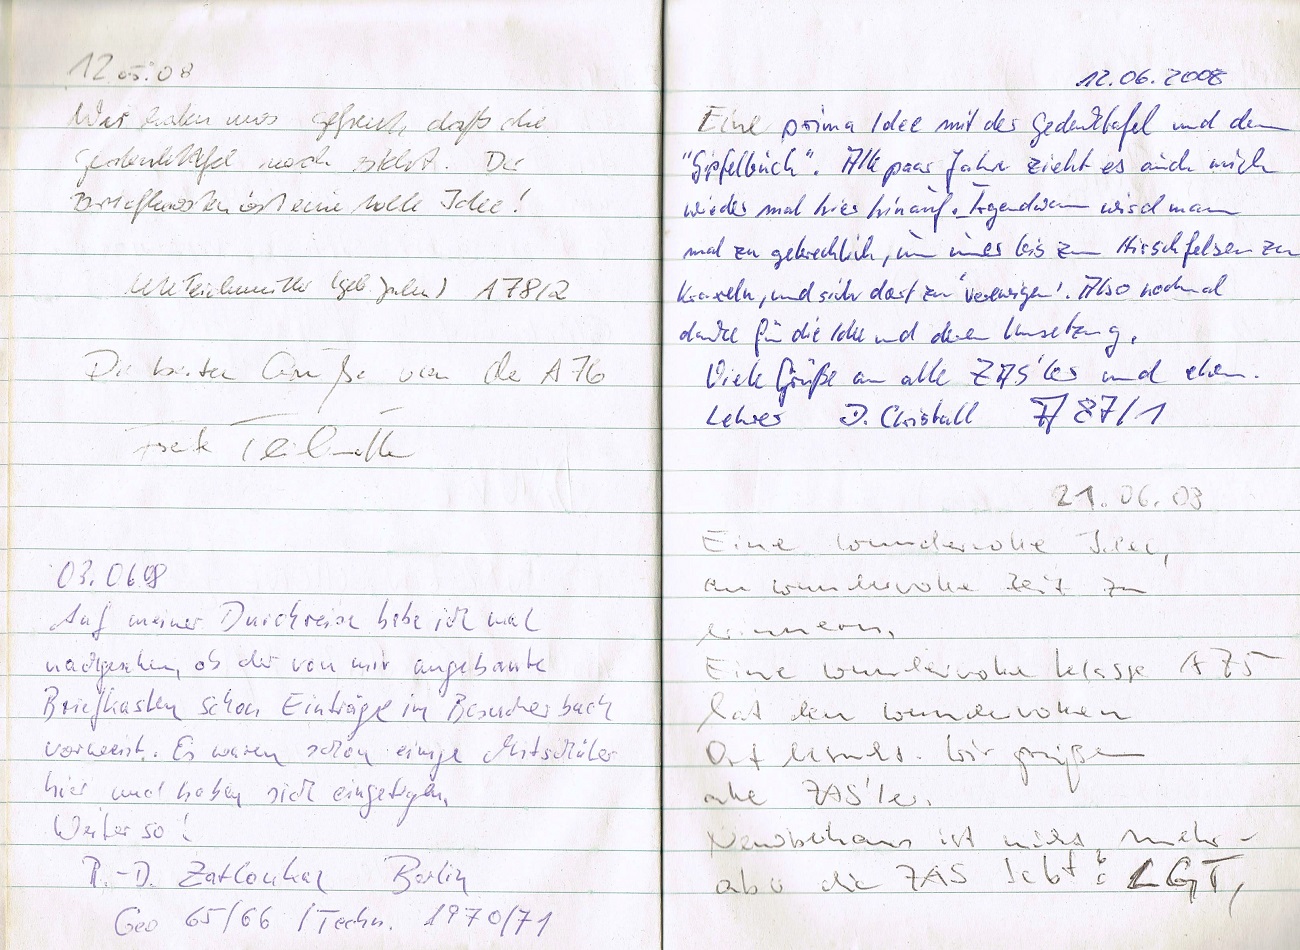 12.05.08
Wir haben uns gefreut, daß die
Gedenktafel noch steht. Der
Briefkasten ist eine tolle Idee!
(geb. ) A 78/2
Die besten Grüße von der A76
03.06.08
Auf meiner Durchreise habe ich mal
nachgesehen, ob der von mir angebaute
Briefkasten schon Einträge im Besucherbuch
vorweist. Es waren schon einige Mitschüler
hier und haben sich eingetragen.
Weiter so!
P.-D. Zatloukal Berlin
Geo 65/66 / Techn. 1970/71
12.06.2008
Eine prima Idee mit der Gedenktafel und dem
"Gipfelbuch". Alle paar Jahre zieht es auch mich
wieder mal hier hinauf. Irgendwann wird man
mal zu gebrechlich, um bis zum Hirschfelsen zu
kraxeln, und sich dort zu 'verewigen'. Also nochmal
danke für die Idee und deren Umsetzung.
Viele Grüße an alle ZAS'ler und ehem.
Lehrer D. Christall A 87/1
21.06.08
Eine wundervolle Idee,
an wundervolle Zeit zu
erinnern.
Eine wundervolle Klasse A 75
hat den wundervollen
Ort besucht. Wir grüßen
alle ZAS'ler.
ist nichts mehr -
aber die ZAS lebt! LGT,